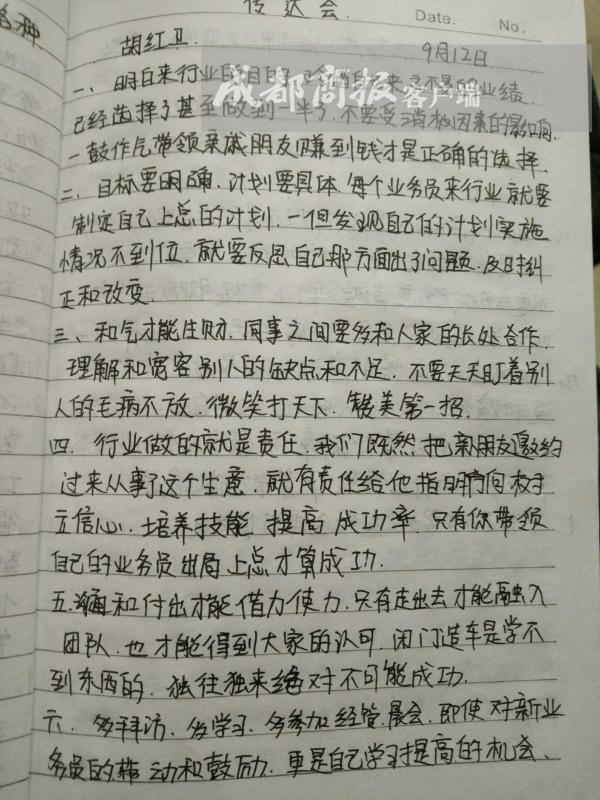 传达会.
Date. No.
胡红卫. 9月12日
成都商报客户端
一、明白来行业的目的
已经选择了甚至做到一半了.不要受消极因素的影响
一鼓作气带领亲戚朋友赚到钱才是正确的选择.
二、目标要明确.计划要具体.每个业务员来行业就要
制定自己上总的计划.一但发现自己的计划实施
情况不到位.就要反思自己那方面出了问题.及时纠
正和改变.
三、和气才能生财.同事之间要多和人家的长处合作.
理解和宽容别人的缺点和不足.不要天天盯着别
人的毛病不放.微笑打天下.赞美第一招.
四.行业做的就是责任.我们既然把亲朋友邀约
过来从事了这个生意.就有责任给他指明方向树
立信心.培养技能.提高成功率.只有你带领
自己的业务员出局上总才算成功.
五.沟通和付出才能借力使力.只有走出去才能融入
团队.也才能得到大家的认可.闭门造车是学不
到东西的.独往独来绝对不可能成功.
六.多拜访.多学习.多参加经管晨会.即使对新业
务员的带动和鼓励.更是自己学习提高的机会、